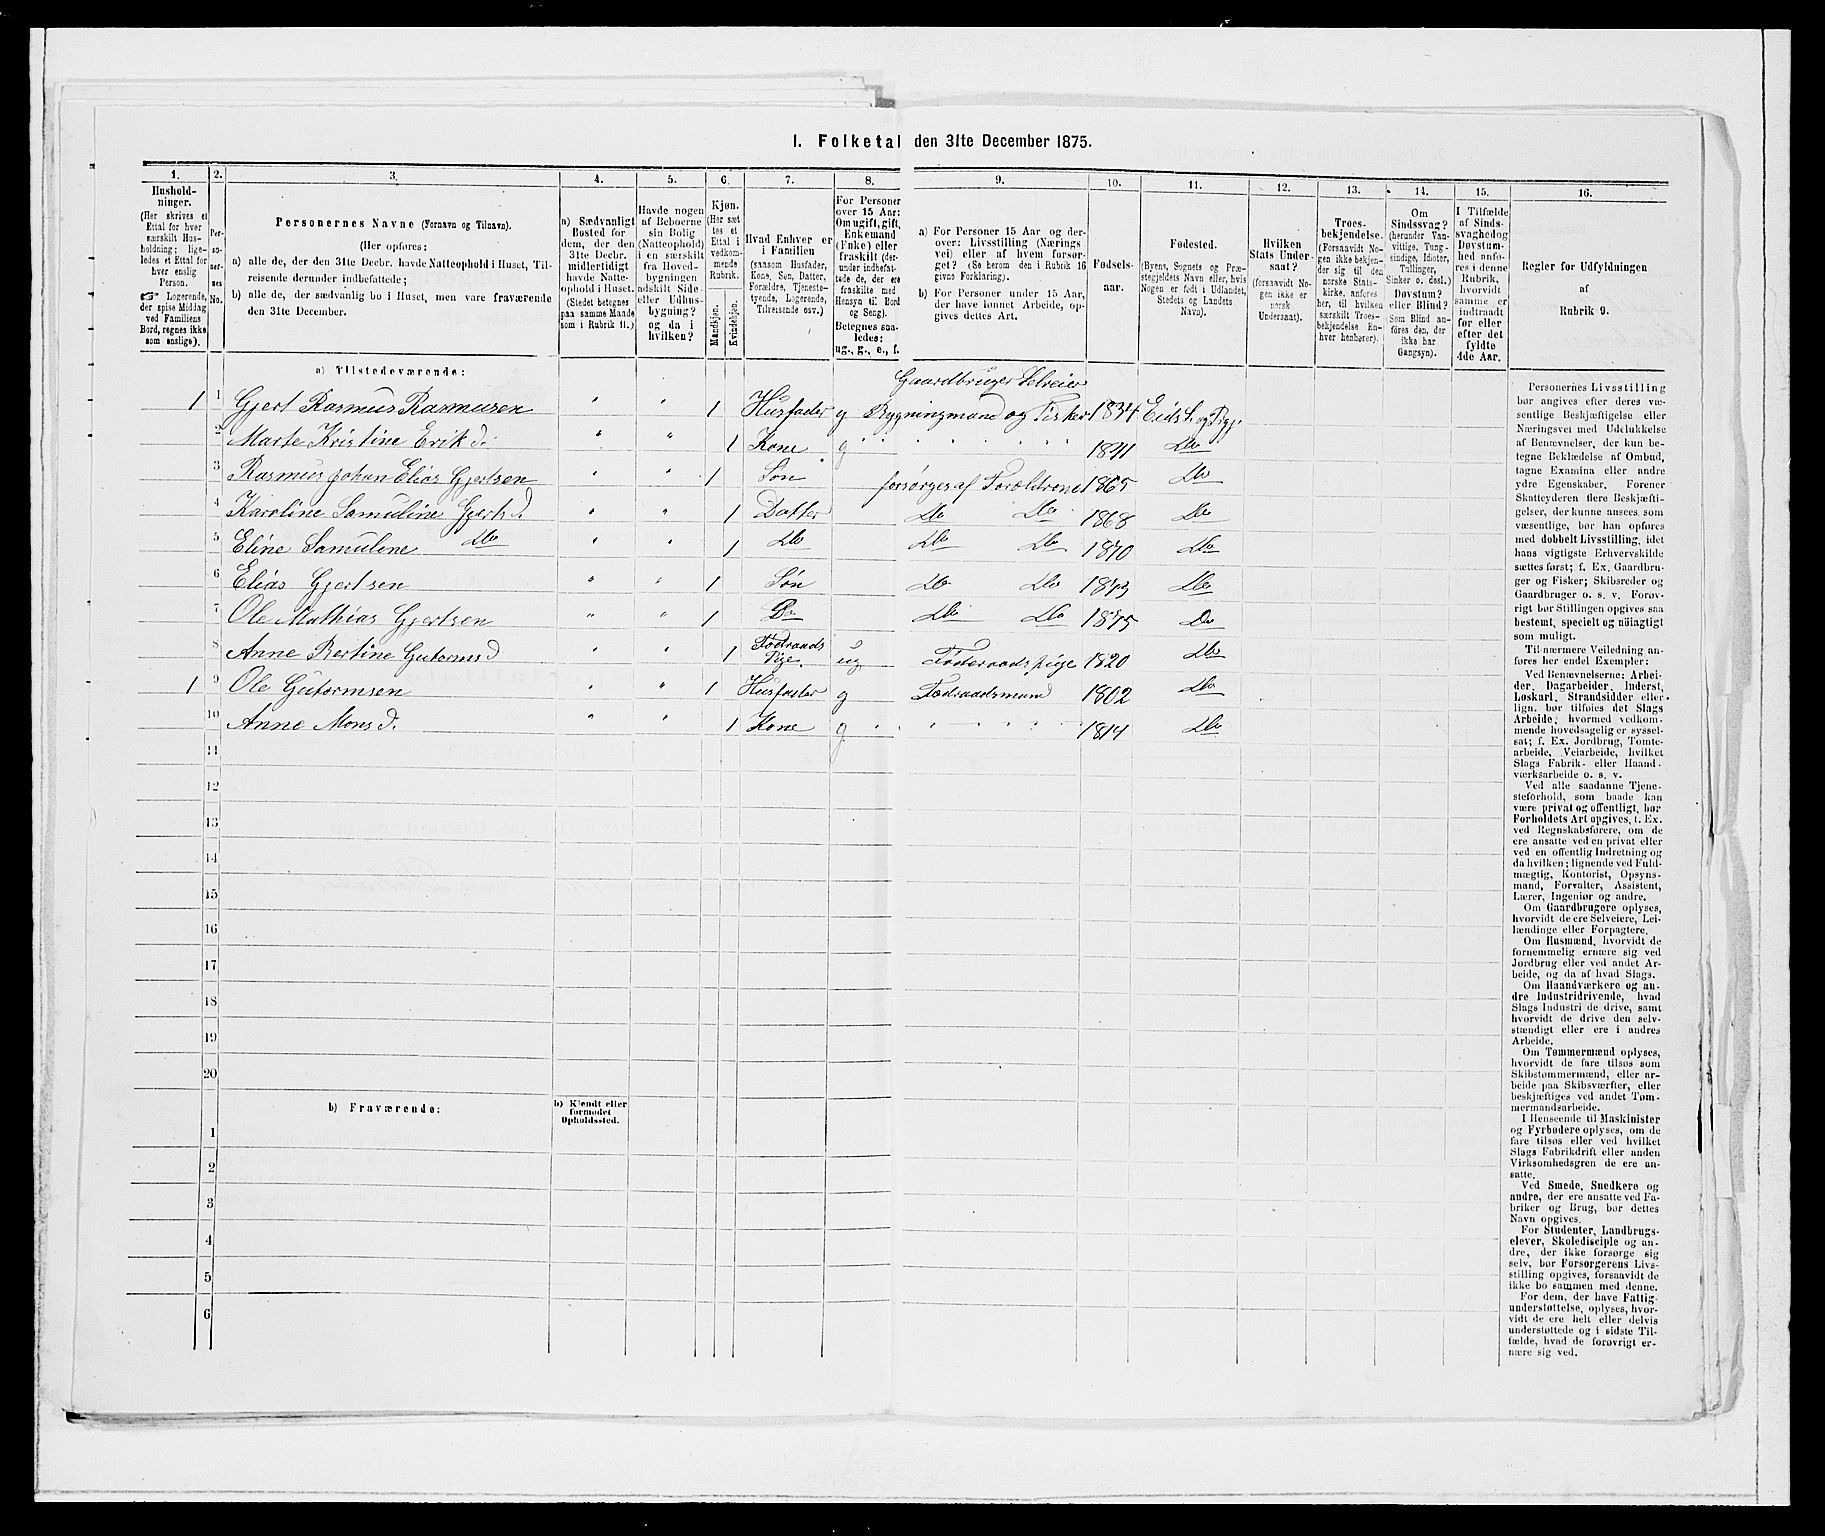 I. Folketal den 31te December 1875.
1. 2. 3. 4. 5. 6. 7. 8. 9. 10. 11. 12. 13. 14. 15. 16.
Hushold-
ninger.
(Her skrives et
Ettal for hver
særskilt Hus-
holdning; lige-
ledes et Ettal for
hver enslig
Person.
Logerende,
der spise Middag
ved Familiens
Bord, regnes ikke
som enslige).
Per-
so-
ner-
nes
No.
Personernes Navne (Fornavn og Tilnavn).
(Her opføres:
a) alle de, der den 31te Decbr. havde Natteophold i Huset, Til-
reisende derunder indbefattede;
b) alle de, der sædvanlig bo i Huset, men vare fraværende
den 31te December.
a) Sædvanligt
Bosted for
dem, der den
31te Decbr.
midlertidigt
havde Natte-
ophold i Huset.
(Stedet betegnes
paa samme Maade
som i Rubrik 11.)
Havde nogen
af Beboerne
sin Bolig
(Natteophold)
i en særskilt
fra Hoved-
bygningen
adskilt Side-
eller Udhus-
bygning?
og da i
hvilken?
Kjøn.
(Her sæt-
tes et
Ettal i
vedkom-
mende
Rubrik.
Mandkjøn.
Kvindekjøn.
Hvad Enhver er
i Familien
(saasom Husfader,
Kone, Søn, Datter,
Forældre, Tjeneste-
tyende, Logerende,
Tilreisende osv.)
For Personer
over 15 Aar:
Om ugift, gift,
Enkemand
(Enke) eller
fraskilt (der-
under indbefat-
tede de, der ere
fraskilte med
Hensyn til Bord
og Seng).
Betegnes saa-
ledes:
ug., g., e., f.
a) For Personer 15 Aar og der-
over: Livsstilling (Nærings
vei) eller af hvem forsør-
get? (Se herom den i Rubrik 16
givne Forklaring).
b) For Personer under 15 Aar,
der have lønnet Arbeide, op-
gives dettes Art.
Fødsels-
aar.
Fødested.
(Byens, Sognets og Præ-
stegjeldets Navn eller, hvis
Nogen er født i Udlandet,
Stedets og Landets
Navn).
Hvilken
Stats Under-
saat?
(forsaavidt No-
gen ikke er
norsk
Undersaat).
Troes-
bekjendelse.
(Forsaavidt No-
gen ikke bekjen-
der sig til den
norske Stats-
kirke, anføres
her, til hvilken
særskilt Troes-
bekjendelse En-
hver henhører).
Om
Sindssvag?
(herunder Van-
vittige, Tung-
sindige, Idioter,
Tullinger,
Sinker o. desl.)
Døvstum?
eller Blind?
(Som Blind an-
føres den, der
ikke har
Gangsyn).
I Tilfælde
af Sinds-
svaghed og
Døvstum-
hed anfø-
res i denne
Rubrik,
hvorvidt
samme er
indtraadt
før eller
efter det
fyldte
4de Aar.
Regler for Udfyldningen
af
Rubrik 9.
a) Tilstedeværende:
Gaardbruger Selveier
1 1 Gjert Rasmus Rasmusen " " 1 Husfader g Bygningmand og Fisker 1834 Eids S. og Prgj.
2 Marte Kristine Erik d. " " 1 Kone g " " " " " 1841 Do
3 Rasmus Johan Elias Gjertsen " " 1 Søn forsørges af Foroldrene 1865 Do
4 Karoline Samuline Gjerts d. " " 1 Datter Do Do 1868 Do
5 Eline Samuline Do " " 1 Do Do Do 1870 Do
6 Elias Gjertsen " " 1 Søn Do Do 1873 Do
7 Ole Mathias Gjertsen " " 1 Do Do Do 1875 Do
8 Anne Bertine Gutorms d " " 1 Fødraads Pige. ug Føderaads pige 1820 Do
1 9 Ole Gutormsen " " 1 Husfader g Fødraadsmand 1802 Do
10 Anne Mons d. " " 1 Kone g " " " " 1814 Do
11
12
13
14
15
16
17
18
19
20
b) Fraværende: b) Kjendt eller
formodet
Opholdssted.
1
2
3
4
5
6
Personernes Livsstilling
bør angives efter deres væ-
sentlige Beskjæftigelse eller
Næringsvei med Udelukkelse
af Benævnelser, der kun be-
tegne Beklædelse af Ombud,
tagne Examina eller andre
ydre Egenskaber. Forener
Skatteyderen flere Beskjæfti-
gelser, der kunne ansees som
væsentlige, bør han opføres
med dobbelt Livsstilling, idet
hans vigtigste Erhvervskilde
sættes først; f. Ex. Gaardbru-
ger og Fisker; Skibsreder og
Gaardbruger o. s. v. Forøv-
rigt bør Stillingen opgives saa
bestemt, specielt og nöiagtigt
som muligt.
Til nærmere Veiledning an-
føres her endel Exempler:
Ved Benævnelserne: Arbei-
der, Dagarbeider, Inderst,
Løskarl, Strandsidder eller
lign. bør tilføies det Slags
Arbeide, hvormed vedkom-
mende hovedsagelig er syssel-
sat; f. Ex. Jordbrug, Tomte-
arbeide, Veiarbeide, hvilket
Slags Fabrik- eller Haand-
værksarbeide o. s. v.
Ved alle saadanne Tjene-
steforhold, som baade kan
være privat og offentligt, bør
Forholdets Art opgives, t. Ex.
ved Regnskabsførere, om de
ere ansatte ved en privat eller
ved en offentlig Indretning og
da hvilken; lignende ved Fuld-
mægtig, Kontorist, Opsyns-
mand, Forvalter, Assistent,
Lærer, Ingeniør og andre.
Om Gaardbrugere oplyses,
hvorvidt de ere Selveiere, Lei-
lændinge eller Forpagtere.
Om Husmænd, hvorvidt de
fornemmelig ernære sig ved
Jordbrug eller ved andet Ar-
beide, og da af hvad Slags.
Om Haandværkere og an-
dre Industridrivende, hvad
Slags Industri de drive, samt
hvorvidt de drive den selv-
stændigt eller ere i andres
Arbeide.
Om Tømmermænd oplyses,
hvorvidt de fare tilsøs som
Skibstømmermænd, eller ar-
beide paa Skibsværfter, eller
beskjæftiges ved andet Tøm-
mermandsarbeide.
I Henseende til Maskinister
og Fyrbødere oplyses, om de
fare tilsøs eller ved hvilket
Slags Fabrikdrift eller anden
Virksomhedsgren de ere an-
satte.
Ved Smede, Snedkere og
andre, der ere ansatte ved Fa-
briker og Brug, bør dettes
Navn opgives.
For Studenter, Landbrugs-
elever, Skoledisciple og an-
dre, der ikke forsørge sig
selv, bør Forsørgerens Livs-
stilling opgives, forsaavidt de
ikke bo sammen med denne.
For dem, der have Fattig-
understøttelse, oplyses, hvor-
vidt de ere helt eller delvis
understøttede og i sidste Til-
fælde, hvad de forøvrigt er-
nære sig ved.